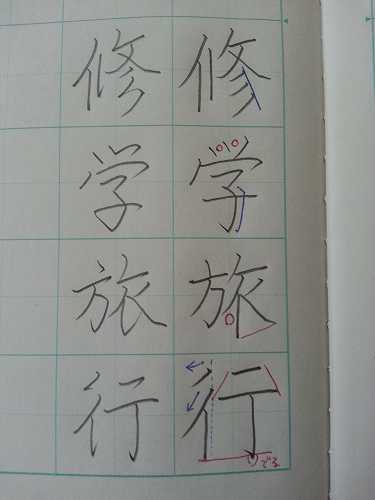 修学旅行
でる
修学旅行